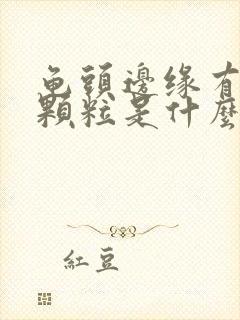 龟頭邊缘有
顆粒是什麼
紅豆